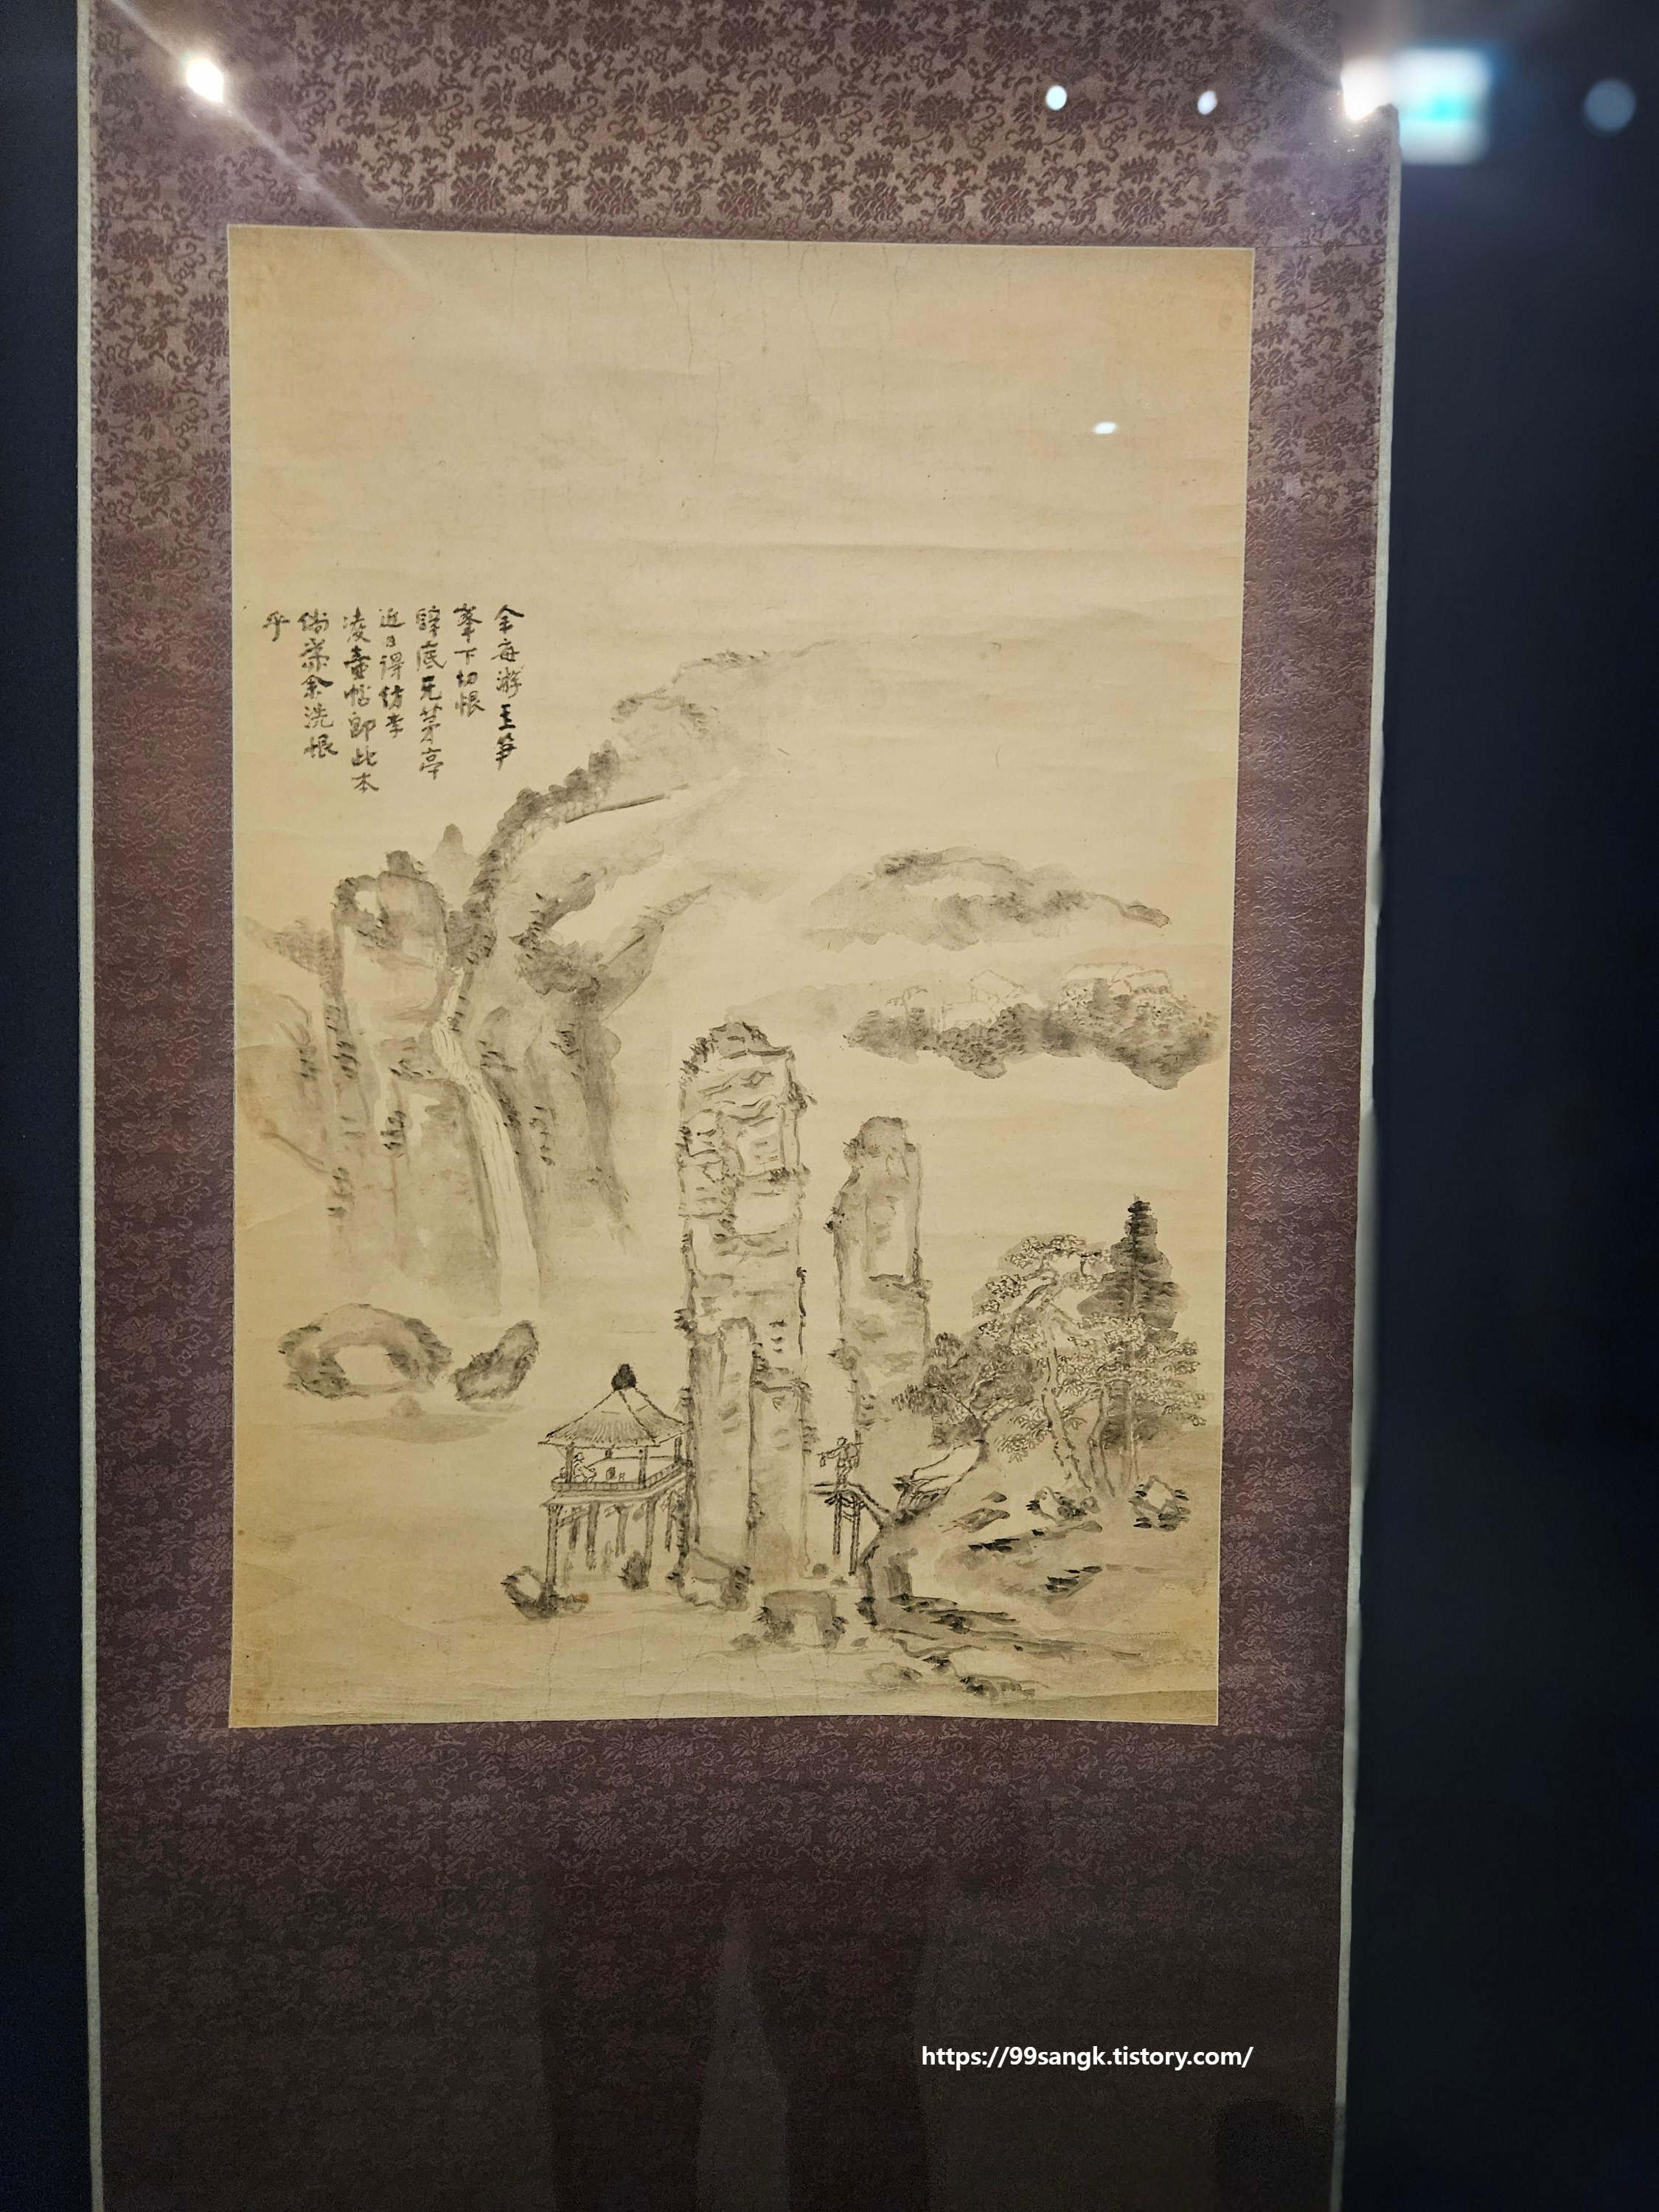 余每游玉笋
峯下切恨
底无茅亭
近日得仿李
凌壺帖卽此本
倘余洗恨
乎
https://99sangk.tistory.com/